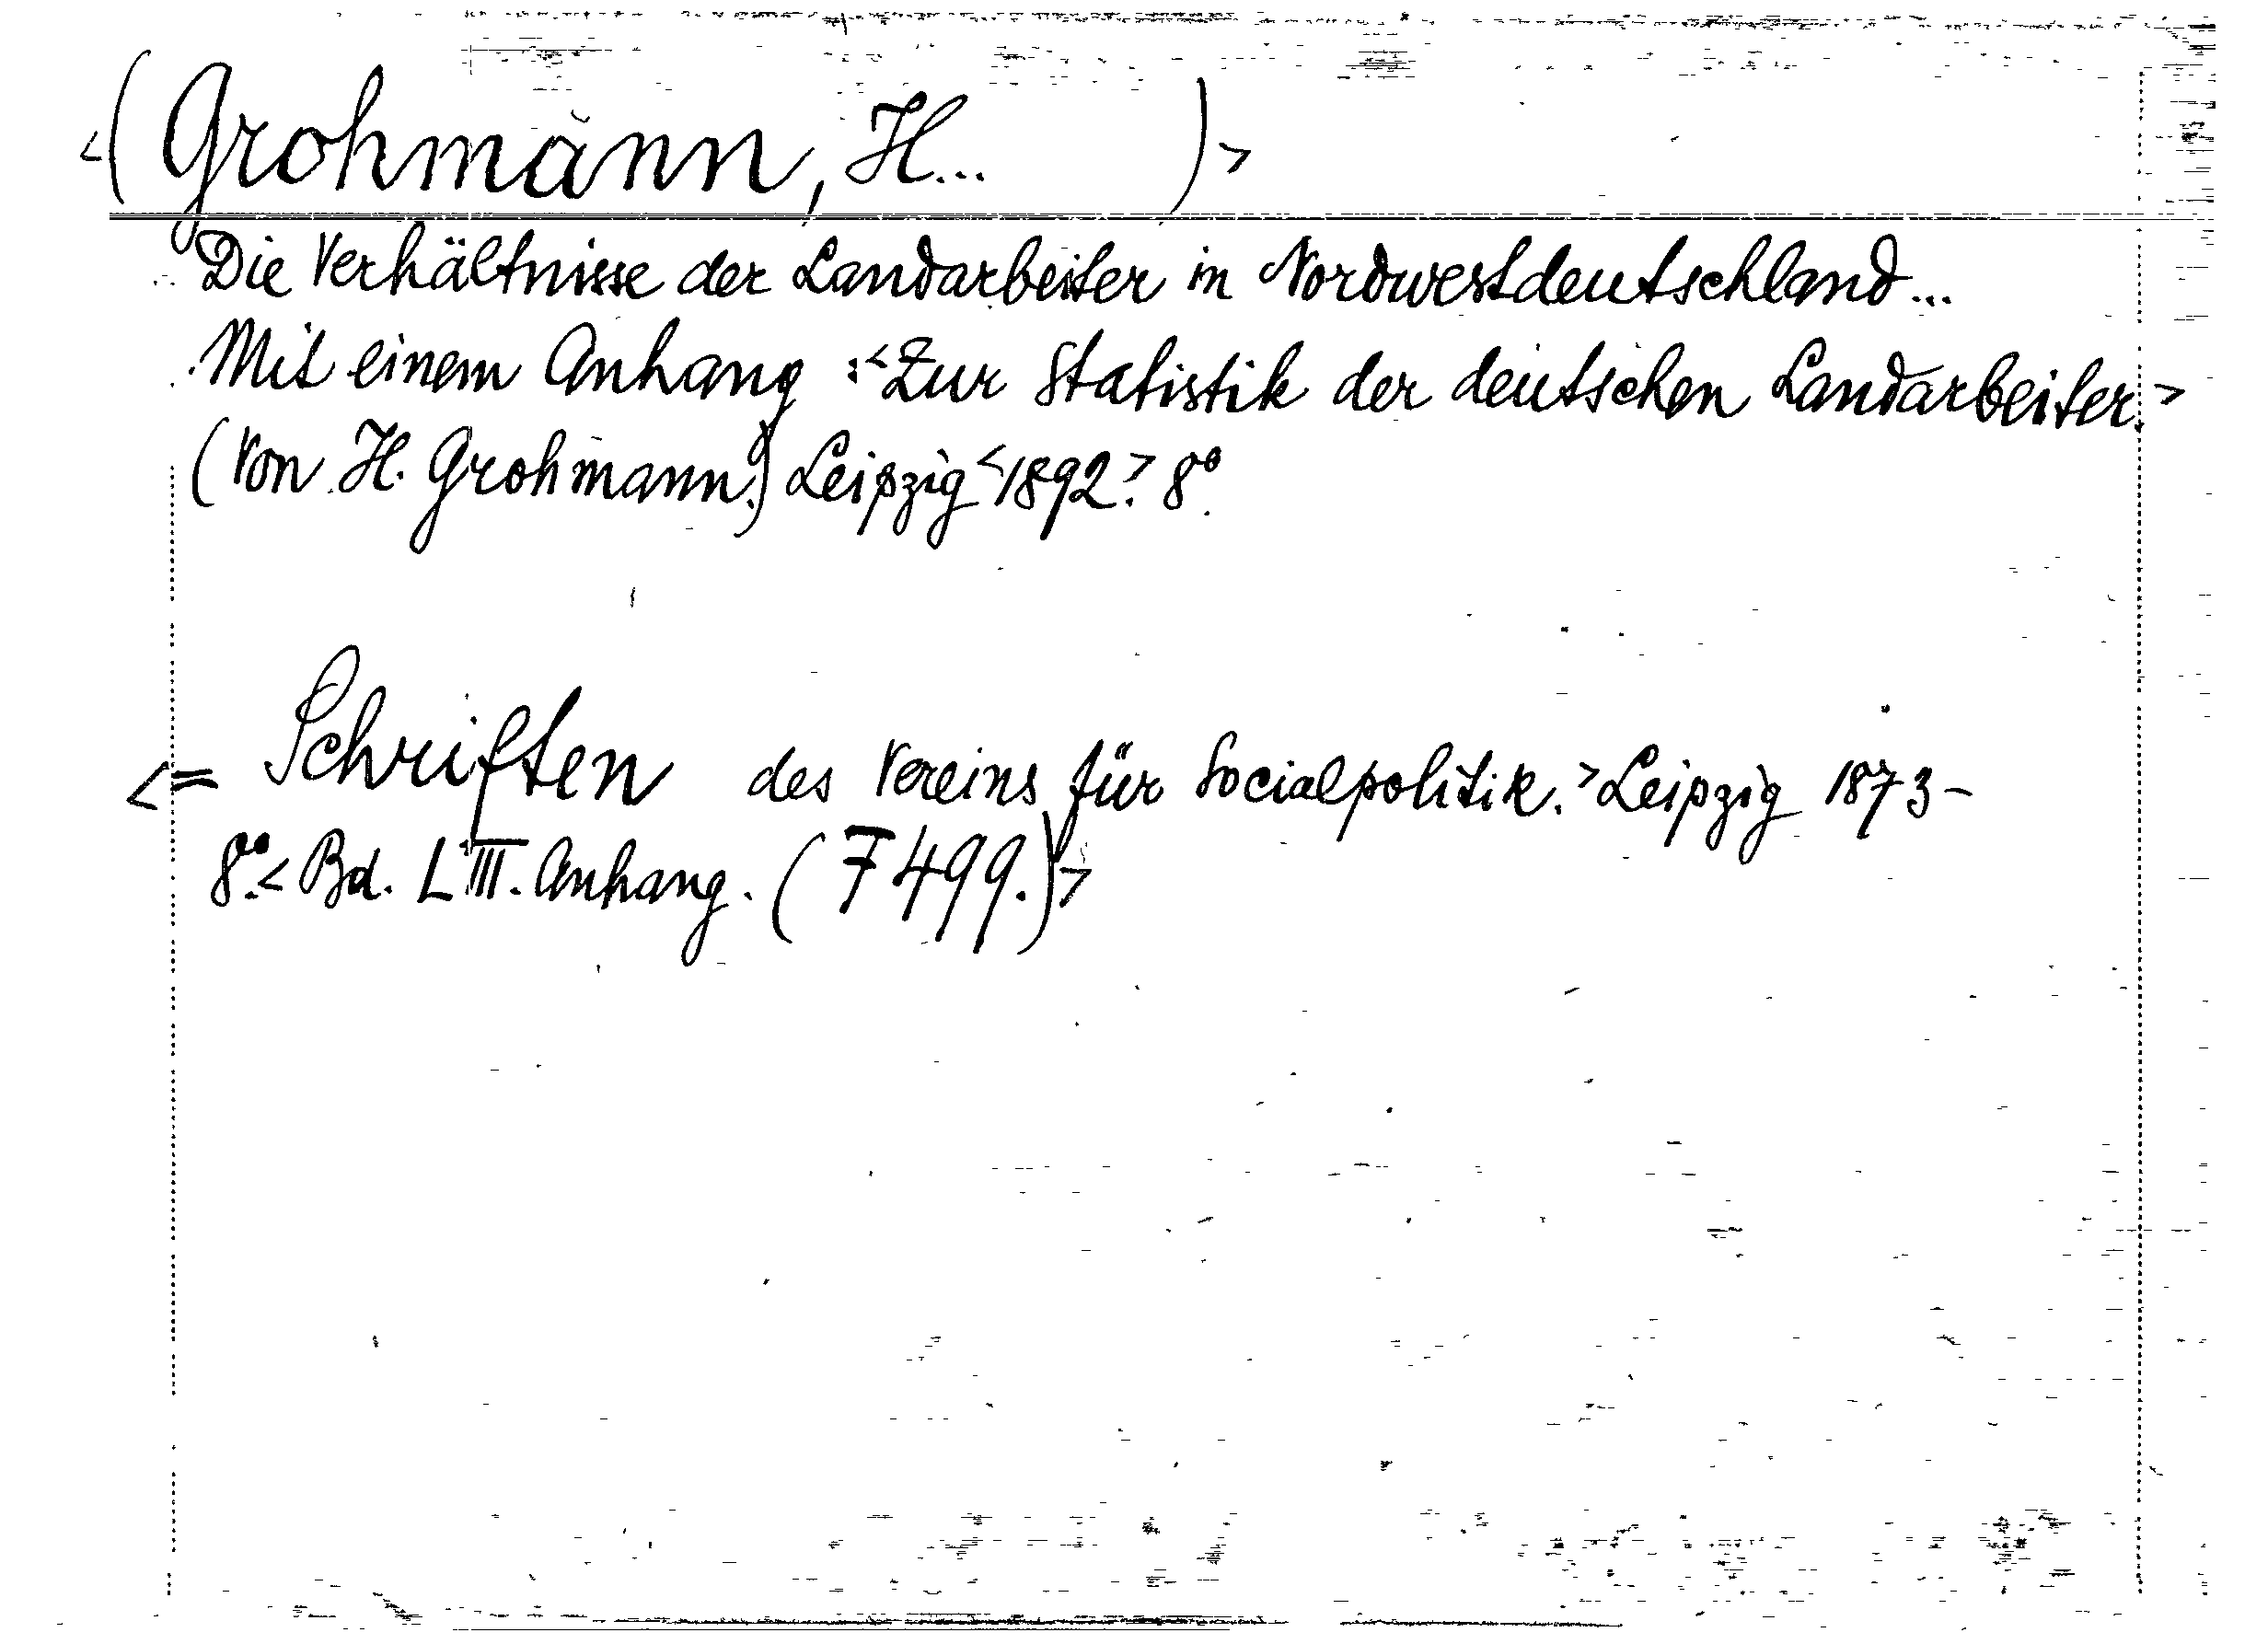 <(Grohmann, H... )>
Die Verhältnisse der Landarbeiter in Nordwestdeutschland...
Mit einem Anhang :<Zur Statistik der deutschen Landarbeiter.>
(Von H. Grohmann.) Leipzig <1892>. 8°.
<= Schriften des Vereins für Socialpolitik.> Leipzig 1873-
8°.< Bd. LIII. Anhang. (F 499.)>